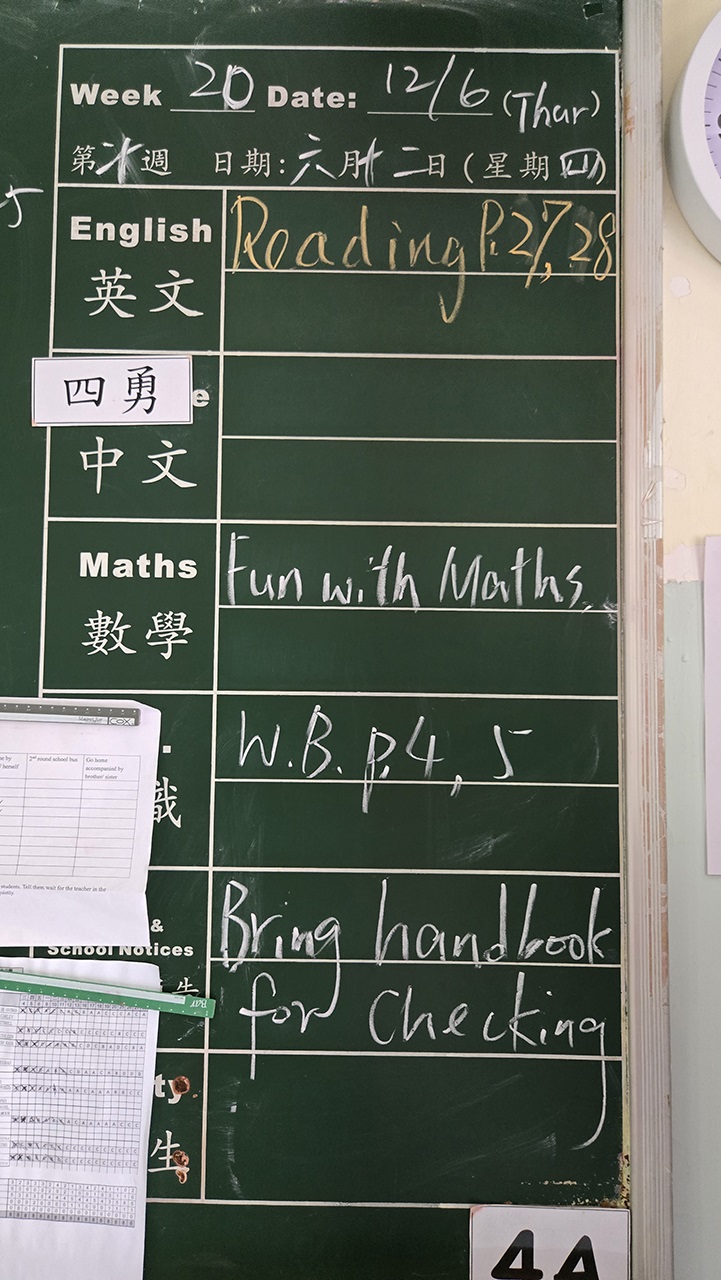 Week 20 Date: 12/6 (Thur)
第廿週 日期:六月十二日(星期四)
5
English Reading P.27, 28
英文
四勇 e
中文
Maths Fun with Maths.
數學
COX
2nd round school bus
Go home accompanied by brother/ sister
W.B. p.4, 5
識
students. Tell them wait for the teacher in the
&
School Notices
Bring handbook
生
for checking
ty
生
4A